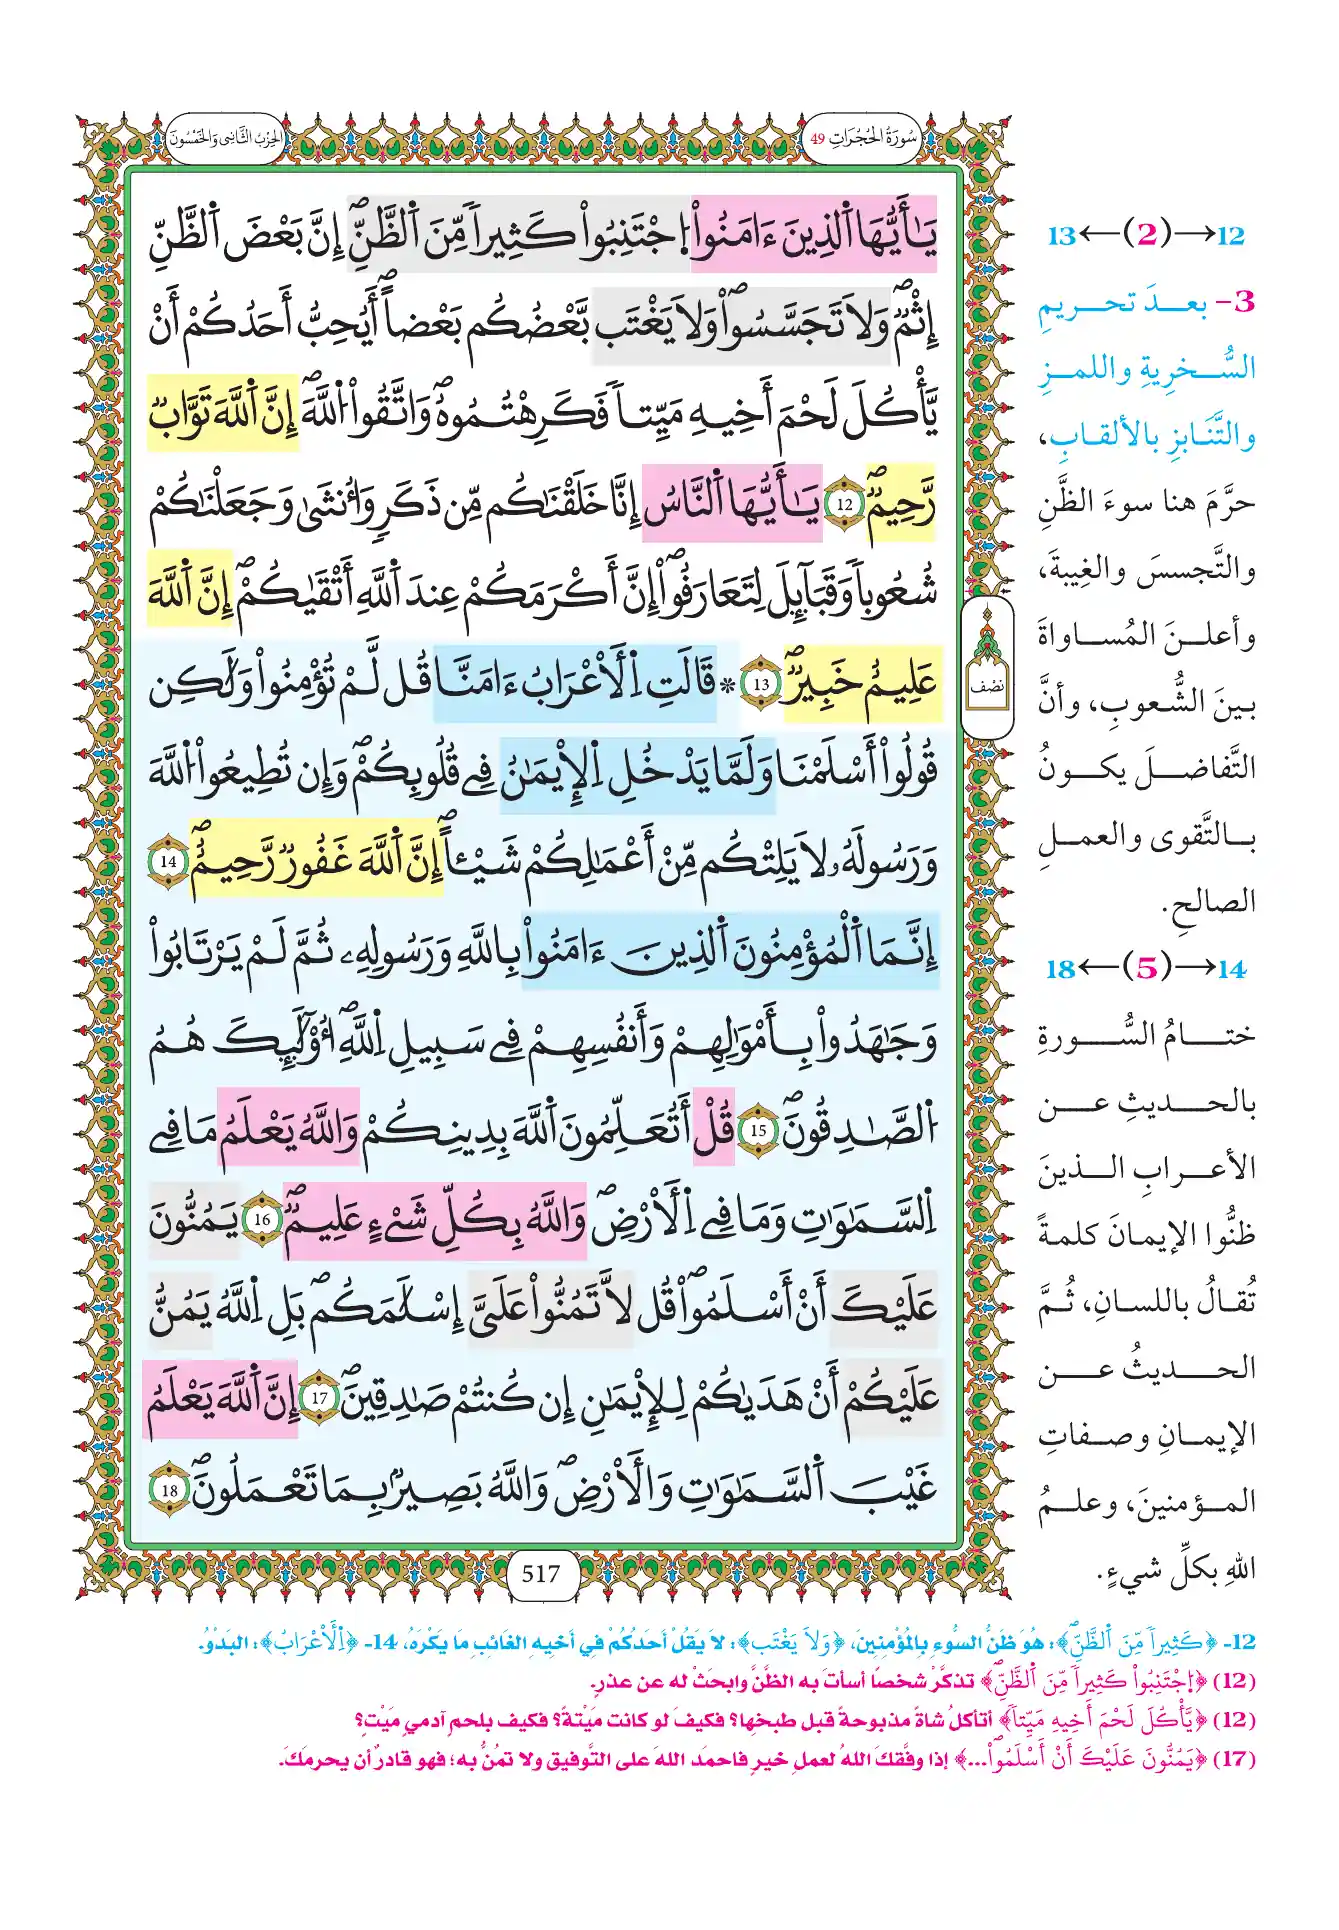 سُورَةُ الحُجُرَاتِ 49
الحِزْبُ الثَّانِي وَالخَمْسُونَ
يَٰأَيُّهَا اَ۬لذِينَ ءَامَنُواْ اُ۪جْتَنِبُواْ كَثِيراٗ مِّنَ اَ۬لظَّنِّۖ إِنَّ بَعْضَ اَ۬لظَّنِّ
إِثْمٞۖ وَلَا تَجَسَّسُواْۖ وَلَا يَغْتَب بَّعْضُكُم بَعْضاًۖ أَيُحِبُّ أَحَدُكُمْ أَنْ
يَّأْكُلَ لَحْمَ أَخِيهِ مَيِّتاٗ فَكَرِهْتُمُوهُۖ وَاتَّقُواْ اُ۬للَّهَۖ إِنَّ اَ۬للَّهَ تَوَّابٞ
رَّحِيمٞۖ 12 يَٰأَيُّهَا اَ۬لنَّاسُ إِنَّا خَلَقْنَٰكُم مِّن ذَكَرٖ وَأُنثَىٰ وَجَعَلْنَٰكُمْ
شُعُوباٗ وَقَبَآئِلَ لِتَعَارَفُوٓاْۖ إِنَّ أَكْرَمَكُمْ عِندَ اَ۬للَّهِ أَتْقَيٰكُمْۖ إِنَّ اَ۬للَّهَ
عَلِيمٌ خَبِيرٞۖ 13 * قَالَتِ اِ۬لَاعْرَابُ ءَامَنَّا قُل لَّمْ تُؤْمِنُواْ وَلَٰكِن
قُولُوٓاْ أَسْلَمْنَا وَلَمَّا يَدْخُلِ اِ۬لِايمَٰنُ فِے قُلُوبِكُمْۖ وَإِن تُطِيعُواْ اُ۬للَّهَ
وَرَسُولَهُۥ لَا يَلِتْكُم مِّنْ أَعْمَٰلِكُمْ شَيْـٔاًۖ إِنَّ اَ۬للَّهَ غَفُورٞ رَّحِيمٌۖ 14
إِنَّمَا اَ۬لْمُؤْمِنُونَ اَ۬لذِينَ ءَامَنُواْ بِاللَّهِ وَرَسُولِهِۦ ثُمَّ لَمْ يَرْتَابُواْ
وَجَٰهَدُواْ بِأَمْوَٰلِهِمْ وَأَنفُسِهِمْ فِے سَبِيلِ اِ۬للَّهِۖ أُوْلَٰٓئِكَ هُمُ
اُ۬لصَّٰدِقُونَۖ 15 قُلْ أَتُعَلِّمُونَ اَ۬للَّهَ بِدِينِكُمْ وَاللَّهُ يَعْلَمُ مَا فِے
اِ۬لسَّمَٰوَٰتِ وَمَا فِے اِ۬لَارْضِۖ وَاللَّهُ بِكُلِّ شَےْءٍ عَلِيمٞۖ 16 يَمُنُّونَ
عَلَيْكَ أَنْ أَسْلَمُواْۖ قُل لَّا تَمُنُّواْ عَلَيَّ إِسْلَٰمَكُمۖ بَلِ اِ۬للَّهُ يَمُنُّ
عَلَيْكُمْ أَنْ هَدَيٰكُمْ لِلِايمَٰنِ إِن كُنتُمْ صَٰدِقِينَۖ 17 إِنَّ اَ۬للَّهَ يَعْلَمُ
غَيْبَ اَ۬لسَّمَٰوَٰتِ وَالَارْضِۖ وَاللَّهُ بَصِيرُۢ بِمَا تَعْمَلُونَۖ 18
نصف
517
12→(2)←13
3- بعدَ تحريمِ
السُّخريةِ واللمزِ
والتَّنَابزِ بالألقابِ،
حرَّمَ هنا سوءَ الظَّنِ
والتَّجسسَ والغِيبةَ،
وأعلنَ المُساواةَ
بينَ الشُّعوبِ، وأنَّ
التَّفاضلَ يكونُ
بالتَّقوى والعملِ
الصالحِ.
14→(5)←18
ختامُ السُّورةِ
بالحديثِ عن
الأعرابِ الذينَ
ظنُّوا الإيمانَ كلمةً
تُقالُ باللسانِ، ثُمَّ
الحديثُ عن
الإيمانِ وصفاتِ
المؤمنينَ، وعلمُ
اللهِ بكلِّ شيءٍ.
12- ﴿كَثِيراٗ مِّنَ اَ۬لظَّنِّۖ﴾: هُوَ ظَنُّ السُّوءِ بِالْمُؤْمِنِينَ، ﴿وَلَا يَغْتَب﴾: لَا يَقُلْ أَحَدُكُمْ فِي أَخِيهِ الغَائِبِ مَا يَكْرَهُ، 14- ﴿اِ۬لَاعْرَابُ﴾: البَدْوُ.
(12) ﴿اِ۪جْتَنِبُواْ كَثِيراٗ مِّنَ اَ۬لظَّنِّۖ﴾ تذكَّرْ شخصًا أسأتَ به الظَّنَّ وابحثْ له عن عذرٍ.
(12) ﴿يَّأْكُلَ لَحْمَ أَخِيهِ مَيِّتاٗ﴾ أتأكلُ شاةً مذبوحةً قبل طبخِها؟ فكيفَ لو كانت مَيْتةً؟ فكيف بلحمِ آدميٍ مَيْتٍ؟
(17) ﴿يَمُنُّونَ عَلَيْكَ أَنْ أَسْلَمُواْۖ...﴾ إذا وفَّقكَ اللهُ لعملِ خيرٍ فاحمَد اللهَ على التَّوفيقِ ولا تمُنَّ به؛ فهو قادرٌ أن يحرمَكَ.